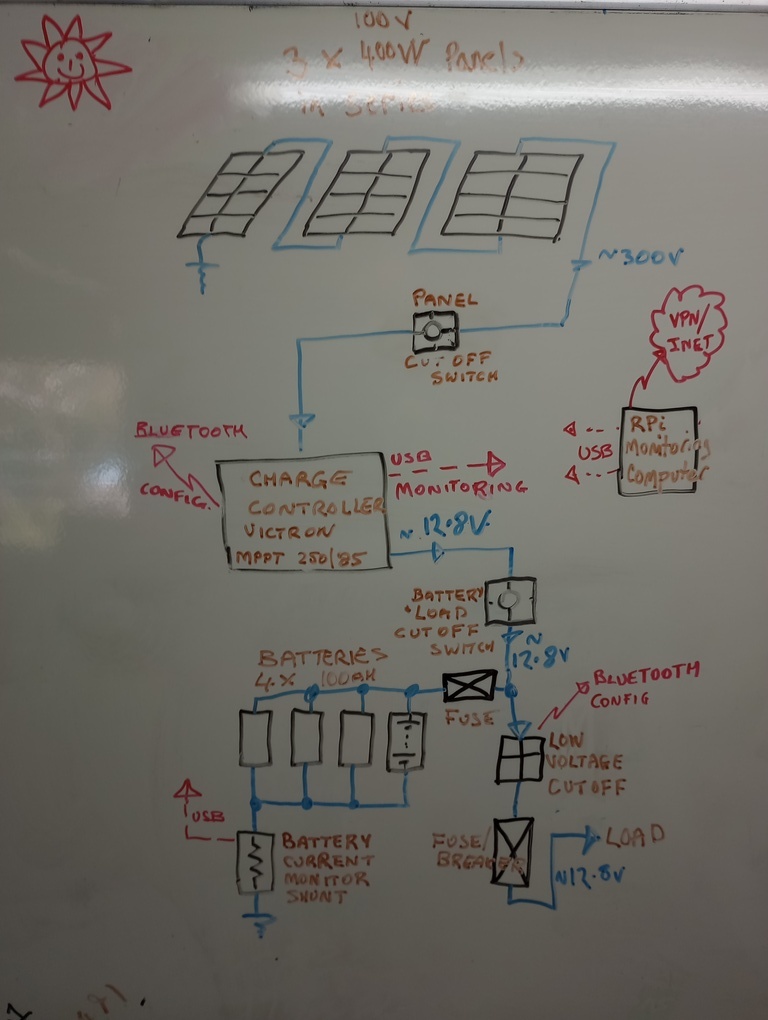 100V
3 X 400W Panels
in series
~300V
PANEL
CUT OFF
SWITCH
VPN/
INET
BLUETOOTH
CONFIG.
CHARGE
CONTROLLER
VICTRON
MPPT 250/85
USB
MONITORING
~ 12.8V
USB
RPi
Monitoring
Computer
BATTERY
+LOAD
CUT OFF
SWITCH
~
12.8V
BATTERIES
4 X 100AH
FUSE
BLUETOOTH
CONFIG
LOW
VOLTAGE
CUTOFF
USB
BATTERY
CURRENT
MONITOR
SHUNT
FUSE/
BREAKER
LOAD
~12.8V